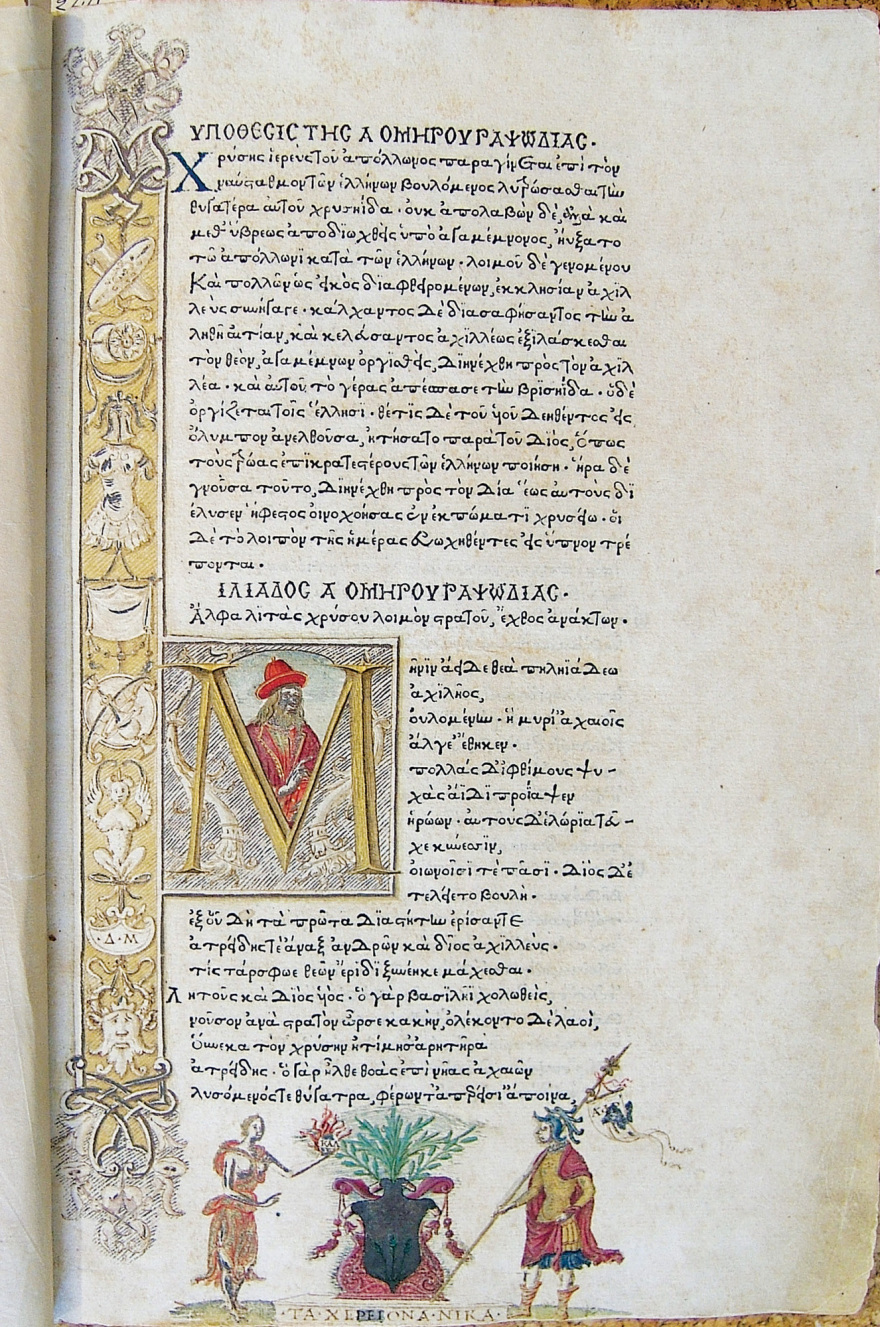 ΥΠΟΘΕϹΙϹ ΤΗϹ Α ΟΜΗΡΟΥ ΡΑΨΩΔΙΑϹ·
Χρύσης ἱερεὺς τοῦ ἀπόλλωνος παραγίνεται ἐπὶ τὸν
ναύσταθμον τῶν ἑλλήνων βουλόμενος λυτρώσασθαι τὴν
θυγατέρα αὐτοῦ χρυσηίδα · οὐκ ἀπολαβὼν δὲ, ἀλλὰ καὶ
μεθ' ὕβρεως ἀποδιωχθεὶς ὑπὸ ἀγαμέμνονος, ηὔξατο
τῶ ἀπόλλωνι κατὰ τῶν ἑλλήνων · λοιμοῦ δὲ γενομένου
Καὶ πολλῶν ὡς εἰκὸς διαφθειρομένων, ἐκκλησίαν ἀχιλ
λεὺς συνήγαγε · κάλχαντος Δὲ διασαφήσαντος τὴν ἀ
ληθῆ αἰτίαν, καὶ κελεύσαντος ἀχιλλέως ἐξιλάσκεσθαι
τὸν θεὸν, ἀγαμέμνων ὀργισθεὶς, Διηνέχθη πρὸς τὸν ἀχιλ
λέα · καὶ αὐτοῦ τὸ γέρας ἀπέσπασε τὴν βρισηίδα · ὁ δὲ
ὀργίζεται τοῖς ἕλλησι · θέτις Δὲ τοῦ υἱοῦ Δεηθέντος εἰς
ὄλυμπον ἀνελθοῦσα, ᾐτήσατο παρὰ τοῦ Διὸς, ὅπως
τοὺς τρῶας ἐπικρατεστέρους τῶν ἑλλήνων ποιήση · ἥρα δὲ
γνοῦσα τοῦτο, Διηνέχθη πρὸς τὸν Δία ἕως αὐτοὺς δι
έλυσεν ἥφεστος οἰνοχοήσας ἐν ἐκπώματι χρυσείω · οἱ
Δὲ τὸ λοιπὸν τῆς ἡμέρας εὐωχηθέντες εἰς ὕπνον τρέ
πονται ·
ΙΛΙΑΔΟϹ Α ΟΜΗΡΟΥ ΡΑΨΩΔΙΑϹ·
Ἄλφα λιτὰς χρύσου λοιμὸν στρατοῦ, ἔχθος ἀνάκτων ·
Μ
ῆνιν ἄειδε θεὰ πηληϊάδεω
ἀχιλῆος,
οὐλομένην · ἣ μυρί' ἀχαιοῖς
ἄλγε' ἔθηκεν ·
πολλὰς Δ' ἰφθίμους ψυ -
χὰς ἄϊδι προΐαψεν
ἡρώων · αὐτοὺς Δ' ἑλώρια τεῦ -
χε κύνεσσιν,
οἰωνοῖσί τε πᾶσι · Διὸς Δ' ἐ
τελείετο βουλή ·
ἐξ οὗ Δὴ τὰ πρῶτα Διαστήτην ἐρίσαντε
ἀτρείδης τε ἄναξ ἀνδρῶν καὶ δῖος ἀχιλλεύς ·
τίς τάρ σφωε θεῶν ἔριδι ξυνέηκε μάχεσθαι ·
Λητοῦς καὶ Διὸς υἱός · ὁ γὰρ βασιλῆι χολωθεὶς,
νοῦσον ἀνὰ στρατὸν ὦρσε κακὴν, ὀλέκοντο Δὲ λαοὶ,
Οὕνεκα τὸν χρύσην ἠτίμησ' ἀρητῆρα
ἀτρείδης · ὁ γὰρ ἦλθε θοὰς ἐπὶ νῆας ἀχαιῶν
λυσόμενός τε θύγατρα, φέρων τ' ἀπερείσι' ἄποινα,
· Δ · Μ
ΤΑ · ΧΕΡΕΙΟΝΑ · ΝΙΚΑ ·